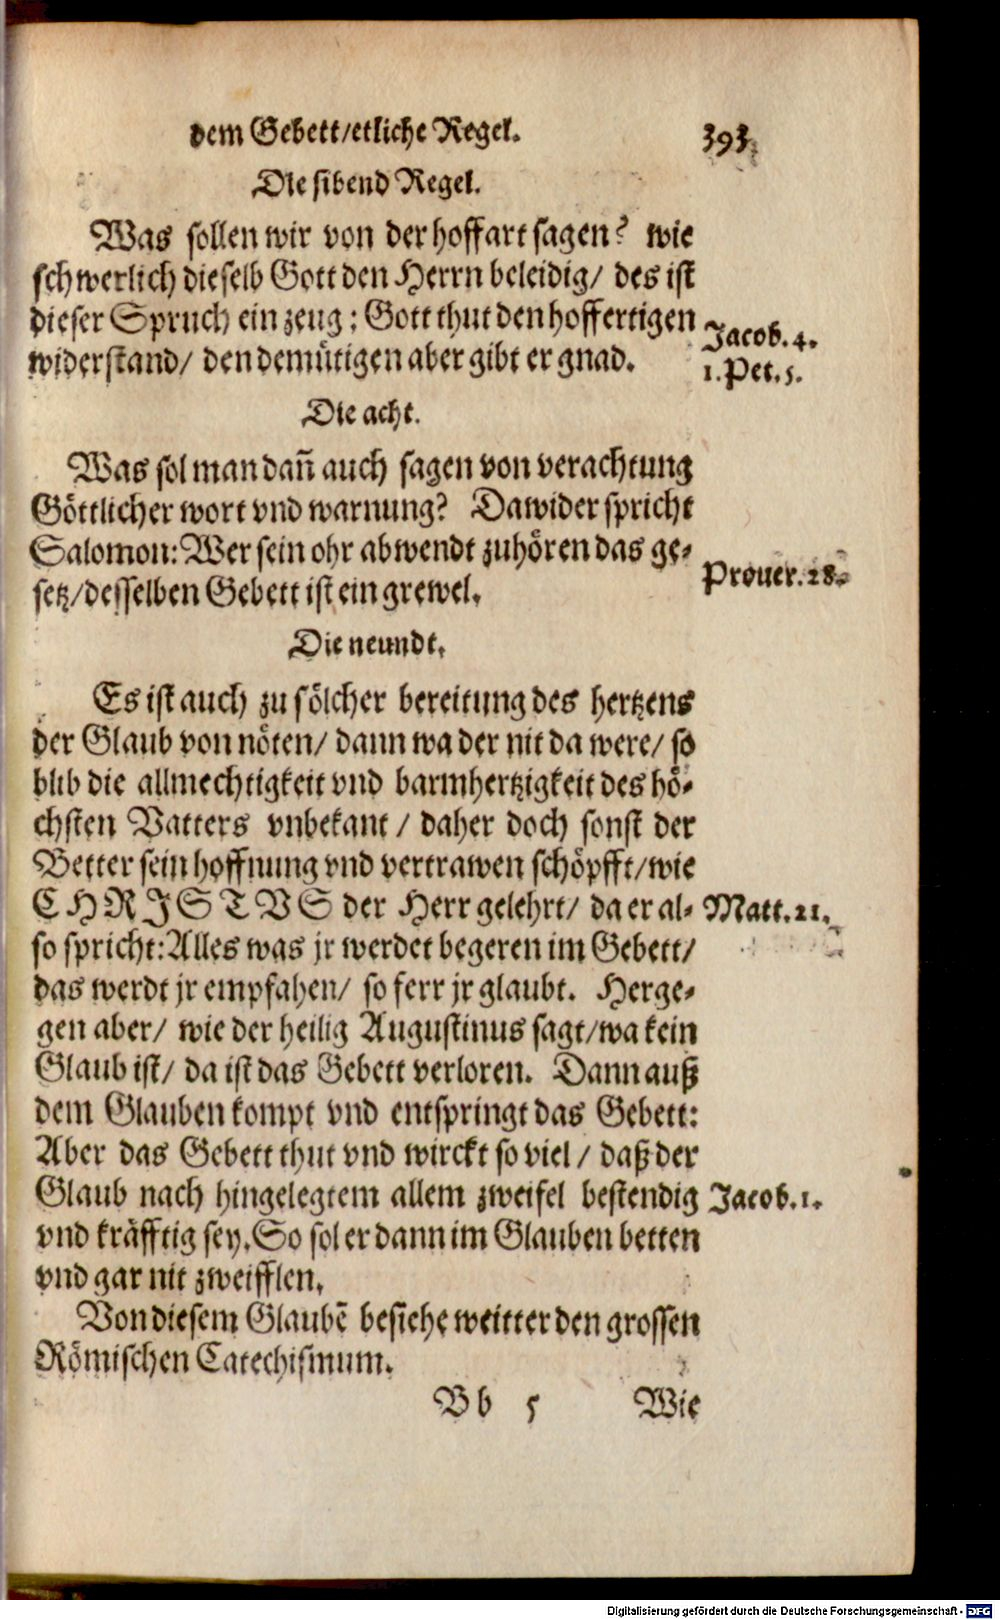 dem Gebett/etliche Regel. 393
Die sibend Regel.
Was sollen wir von der hoffart sagen? wie
schwerlich dieselb Gott den Herrn beleidig/ des ist
dieser Spruch ein zeug: Gott thut den hoffertigen
widerstand/ den demütigen aber gibt er gnad.
Jacob. 4.
1. Pet. 5.
Die acht.
Was sol man dañ auch sagen von verachtung
Göttlicher wort vnd warnung? Dawider spricht
Salomon: Wer sein ohr abwendt zuhören das ge-
setz/desselben Gebett ist ein grewel.
Prouer. 28.
Die neundt.
Es ist auch zu sölcher bereitung des hertzens
der Glaub von nöten/ dann wa der nit da were/ so
blib die allmechtigkeit vnd barmhertzigkeit des hö-
chsten Vatters vnbekant / daher doch sonst der
Better sein hoffnung vnd vertrawen schöpfft/wie
CHRISTVS der Herr gelehrt/ da er al-
Matt. 21.
so spricht: Alles was jr werdet begeren im Gebett/
das werdt jr empfahen/ so ferr jr glaubt. Herge-
gen aber/ wie der heilig Augustinus sagt/wa kein
Glaub ist/ da ist das Gebett verloren. Dann auß
dem Glauben kompt vnd entspringt das Gebett:
Aber das Gebett thut vnd wirckt so viel / daß der
Glaub nach hingelegtem allem zweifel bestendig
Jacob. 1.
vnd kräfftig sey. So sol er dann im Glauben betten
vnd gar nit zweifflen.
Von diesem Glaubē besiehe weitter den grossen
Römischen Catechismum.
Bb 5 Wie
Digitalisierung gefördert durch die Deutsche Forschungsgemeinschaft - DFG